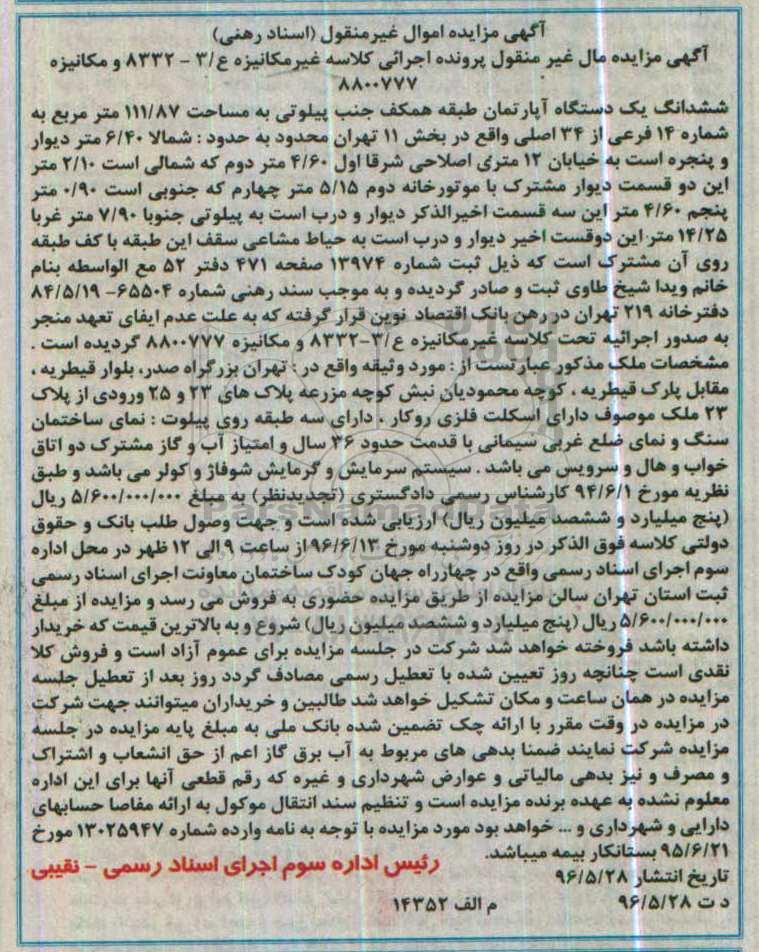 آگهی مزایده اموال غیرمنقول (اسناد رهنی)
آگهی مزایده مال غیر منقول پرونده اجرائی کلاسه غیرمکانیزه ع/۳ - ۸۳۳۲ و مکانیزه
۸۸۰۰۷۷۷
ششدانگ یک دستگاه آپارتمان طبقه همکف جنب پیلوتی به مساحت ۱۱۱/۸۷ متر مربع به
شماره ۱۴ فرعی از ۳۴ اصلی واقع در بخش ۱۱ تهران محدود به حدود : شمالا ۶/۴۰ متر دیوار
و پنجره است به خیابان ۱۲ متری اصلاحی شرقا اول ۴/۶۰ متر دوم که شمالی است ۲/۱۰ متر
این دو قسمت دیوار مشترک با موتورخانه دوم ۵/۱۵ متر چهارم که جنوبی است ۰/۹۰ متر
پنجم ۴/۶۰ متر این سه قسمت اخیرالذکر دیوار و درب است به پیلوتی جنوبا ۷/۹۰ متر غربا
۱۴/۲۵ متر این دوقست اخیر دیوار و درب است به حیاط مشاعی سقف این طبقه با کف طبقه
روی آن مشترک است که ذیل ثبت شماره ۱۳۹۷۴ صفحه ۴۷۱ دفتر ۵۲ مع الواسطه بنام
خانم ویدا شیخ طاوی ثبت و صادر گردیده و به موجب سند رهنی شماره ۶۵۵۰۴- ۸۴/۵/۱۹
دفترخانه ۲۱۹ تهران در رهن بانک اقتصاد نوین قرار گرفته که به علت عدم ایفای تعهد منجر
به صدور اجرائیه تحت کلاسه غیرمکانیزه ع/۳-۸۳۳۲ و مکانیزه ۸۸۰۰۷۷۷ گردیده است .
مشخصات ملک مذکور عبارتست از : مورد وثیقه واقع در : تهران بزرگراه صدر، بلوار قیطریه ،
مقابل پارک قیطریه ، کوچه محمودیان نبش کوچه مزرعه پلاک های ۲۳ و ۲۵ ورودی از پلاک
۲۳ ملک موصوف دارای اسکلت فلزی روکار ، دارای سه طبقه روی پیلوت : نمای ساختمان
سنگ و نمای ضلع غربی سیمانی با قدمت حدود ۳۶ سال و امتیاز آب و گاز مشترک دو اتاق
خواب و هال و سرویس می باشد . سیستم سرمایش و گرمایش شوفاژ و کولر می باشد و طبق
نظریه مورخ ۹۴/۶/۱ کارشناس رسمی دادگستری (تجدیدنظر) به مبلغ ۵/۶۰۰/۰۰۰/۰۰۰ ریال
(پنج میلیارد و ششصد میلیون ریال) ارزیابی شده است و جهت وصول طلب بانک و حقوق
دولتی کلاسه فوق الذکر در روز دوشنبه مورخ ۹۶/۶/۱۳ از ساعت ۹ الی ۱۲ ظهر در محل اداره
سوم اجرای اسناد رسمی واقع در چهارراه جهان کودک ساختمان معاونت اجرای اسناد رسمی
ثبت استان تهران سالن مزایده از طریق مزایده حضوری به فروش می رسد و مزایده از مبلغ
۵/۶۰۰/۰۰۰/۰۰۰ ریال (پنج میلیارد و ششصد میلیون ریال) شروع و به بالاترین قیمت که خریدار
داشته باشد فروخته خواهد شد شرکت در جلسه مزایده برای عموم آزاد است و فروش کلا
نقدی است چنانچه روز تعیین شده با تعطیل رسمی مصادف گردد روز بعد از تعطیل جلسه
مزایده در همان ساعت و مکان تشکیل خواهد شد طالبین و خریداران میتوانند جهت شرکت
در مزایده در وقت مقرر با ارائه چک تضمین شده بانک ملی به مبلغ پایه مزایده در جلسه
مزایده شرکت نمایند ضمنا بدهی های مربوط به آب برق گاز اعم از حق انشعاب و اشتراک
و مصرف و نیز بدهی مالیاتی و عوارض شهرداری و غیره که رقم قطعی آنها برای این اداره
معلوم نشده به عهده برنده مزایده است و تنظیم سند انتقال موکول به ارائه مفاصا حسابهای
دارایی و شهرداری و ... خواهد بود مورد مزایده با توجه به نامه وارده شماره ۱۳۰۲۵۹۴۷ مورخ
۹۵/۶/۲۱ بستانکار بیمه میباشد.
رئیس اداره سوم اجرای اسناد رسمی - نقیبی
تاریخ انتشار ۹۶/۵/۲۸
د ت ۹۶/۵/۲۸ م الف ۱۴۳۵۲
ParsNamadData